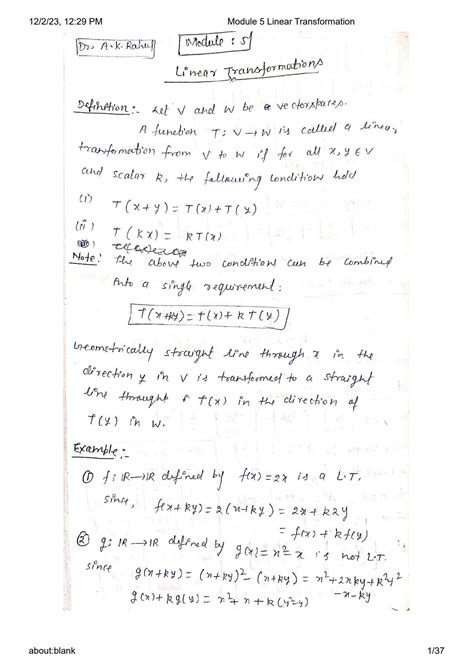 12/2/23, 12:29 PM Module 5 Linear Transformation
Dr. A.K. Rahul Module : 5
Linear Transformations
Definition:- Let V and W be a vectorspaces.
A function T: V → W is called a linear
transfomation from V to W if for all x, y ∈ V
and scalar k, the following condition hold
(i) T(x+y) = T(x) + T(y)
(ii) T(kx) = kT(x)
Note: The above two condition can be combined
into a single requirement:
T(x+ky) = T(x) + kT(y)
Geometrically straight line through x in the
direction y in V is transformed to a straight
line throught T(x) in the direction of
T(y) in W.
Example:-
① f: IR→IR defined by f(x) = 2x is a L.T.
since, f(x+ky) = 2(x+ky) = 2x + k2y
= f(x) + kf(y)
② g: IR → IR defined by g(x) = x² - x is not L.T.
since g(x+ky) = (x+ky)² - (x+ky) = x² + 2xky + k²y²
-x-ky
g(x) + kg(y) = x² + x + k(y²-y)
about:blank 1/37